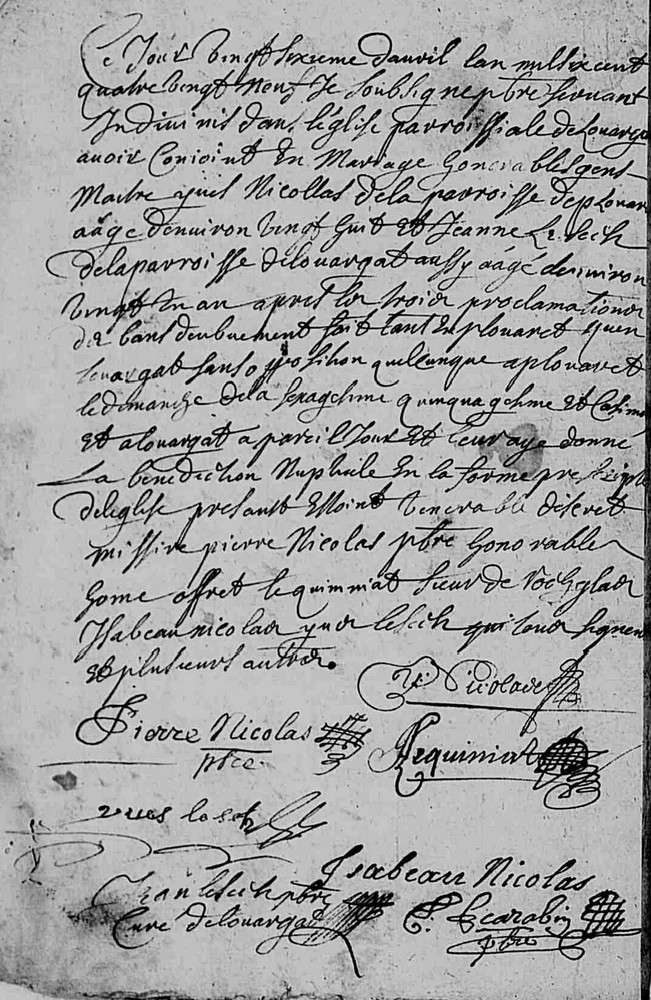 Ce Jour vingt sixieme d'avril lan mil six cent
quatre vingt neuf Je soubsigne pbre servant
Indivinis dans léglise parroissiale de Louarga
avoir Conioint En Mariage honorables gens
Maitre yues Nicollas de la parroisse de plouar
aâge denuiron vingt huit Et Jeanne Le sech
de la parroisse de Louargat aussy aâgé denuiron
vingt un an apres les trois proclamations
de bans deubuement fait tant En plouaret quen
louargat sans opposition quelcunque a plouaret
le demanche de la sexagesime quinquagesime Et
Et a louargat a pareil Jour Et leur aye donne
La benediction Nuptiale En la forme prescripte
de leglise presants Essoint venerable discret
missire pierre Nicolas pbre honorable
home offret le quiniat sieur de
Isabeau nicolas yues le sech qui tous signent
Et plusieurs autres.
Y. Nicolas
Pierre Nicolas
pbre
Lequiniat
yues le sech
Isabeau Nicolas
Jan le sech pbre
Curé de louargat
pbre